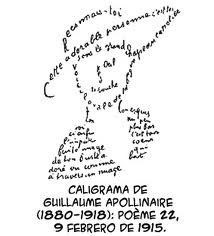 Reconnais-toi
Cette adorable personne c'est toi
Sous le grand chapeau canotier
Œil
Nez
la bouche
Voici l'ovale de ta figure
Ton cou exquis
Voici enfin
l'imparfaite image
de ton buste adoré
vu comme
à travers un nuage
Un peu plus bas
c'est ton cœur
qui bat
CALIGRAMA DE
GUILLAUME APOLLINAIRE
(1880-1918): POÈME 22,
9 FEBRERO DE 1915.